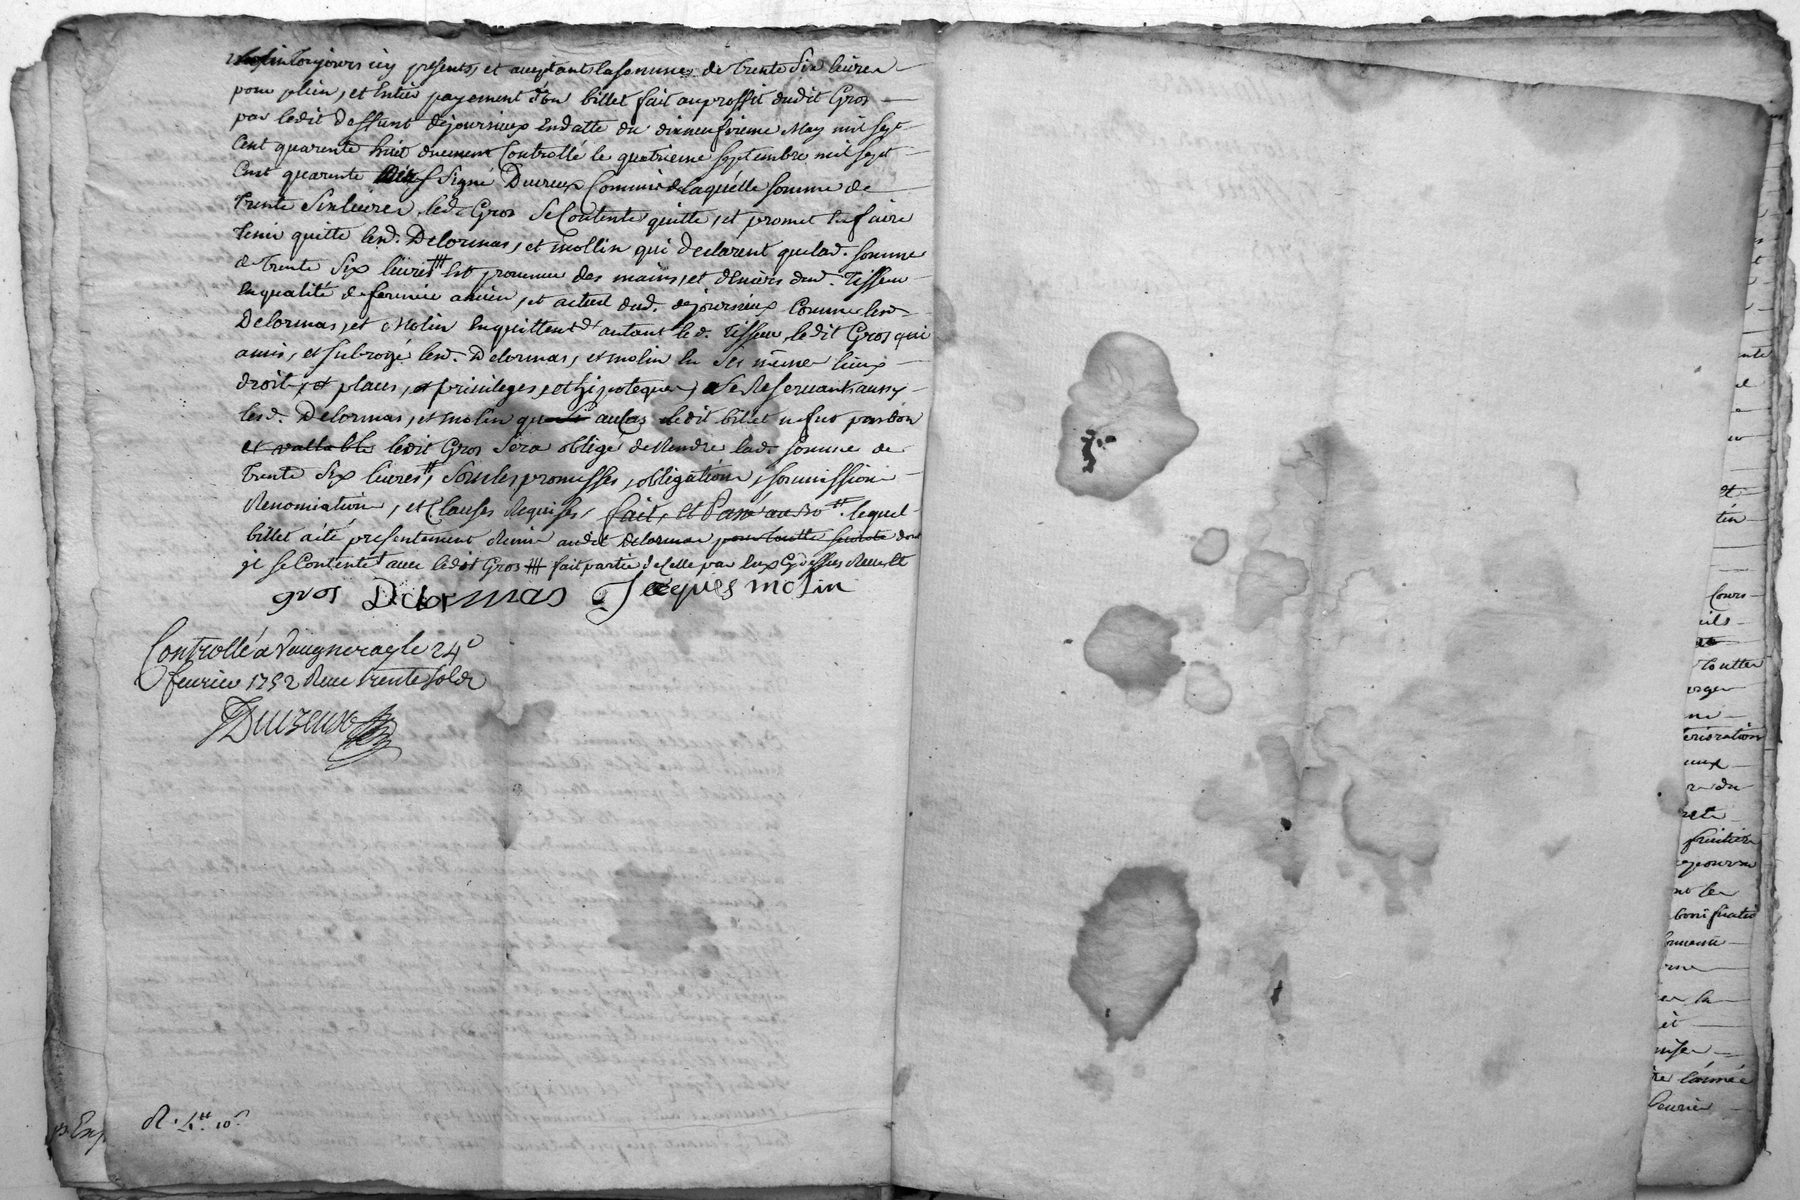 Molin toujours icy presents, et acceptants la somme de trente six livres
pour plein, et Entier payement d'un billet fait au proffit dudit Gros
par ledit deffunt dejoursieux En datte du dixneufvieme May mil sept
Cent quarente huit duement Controllé le quatrieme septembre mil sept
Cent quarente signé Ducreux Commis de laquelle somme de
trente six livres, led. Gros se Contente quitte, et promet les faire
tenir quitte lesd. Delormas, et mollin qui declarent que lad. somme
de trente six livres est provenue des mains, et deniers dud. Tisseur
En qualité de fermier ancien, et actuel dud. dejoursieux Comme lesd.
Delormas, et Molin En quittent d'autant led. Tisseur, ledit Gros qui
a mis, et subrogé lesd. Delormas, et molin En ses même lieux
droits, et places, et privileges, et hipoteques, se Reservants aussy
lesd. Delormas, et molin que au Cas ledit billet ne fut pas bon
et vallable ledit Gros sera obligé de Rendre lad. somme de
trente six livres, sous les promesses, obligations, soumissions
Renonciations, et Clauses Requises, fait, et Passé au lequel
billet a été presentement Remis audit Delormas pour toutte dont
il se Contente avec ledit Gros fait partie de Celle par Eux Cydessus
gros Delormas Jacques molin
Controllé a Vaugneray le 24e
fevrier 1752 Reçu trente sols
Ducreux
R. 10s
p. Exp
nte
et
ten
Cours
ils
toutter
erge
ne
aux
du
fruitier
les
bonification
la
et
l'année